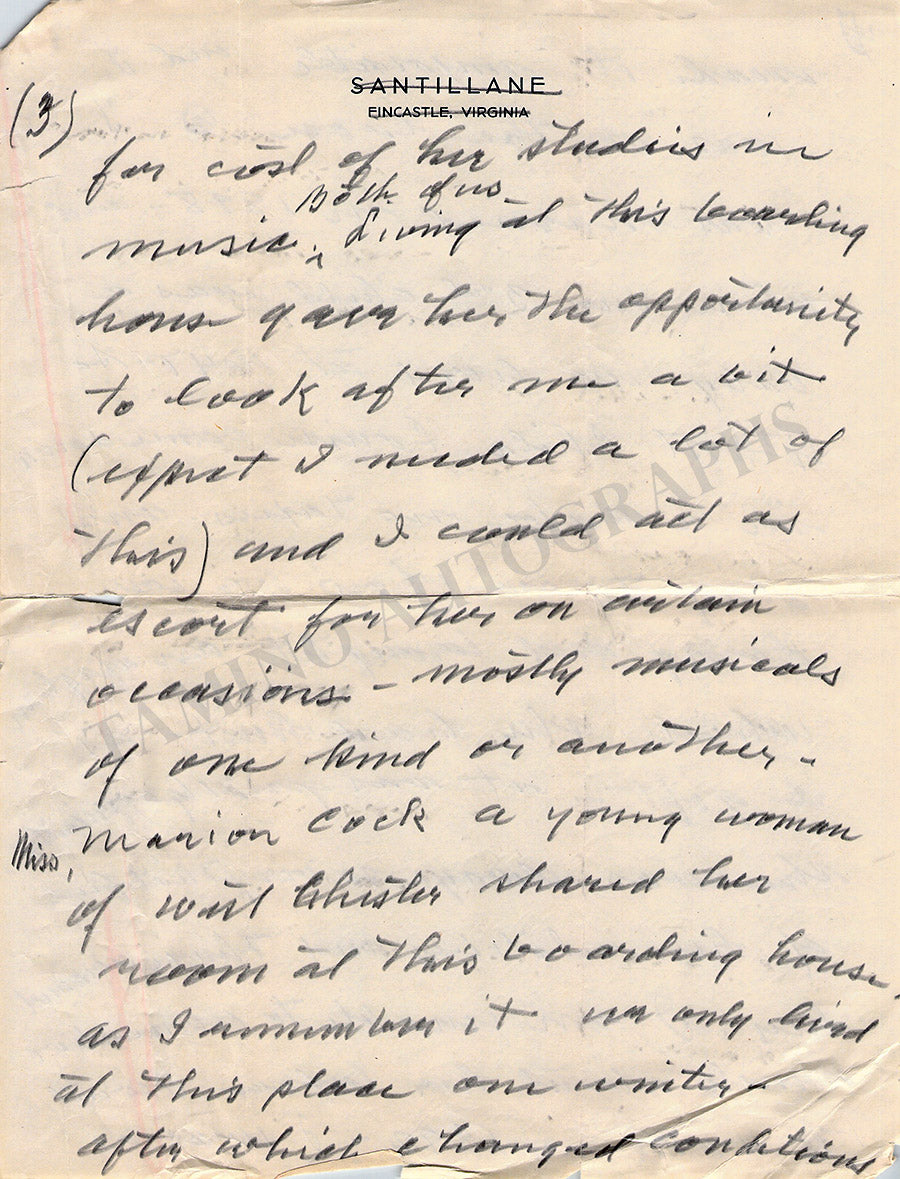 SANTILLANE
FINCASTLE, VIRGINIA
(3)
for cost of her studies in
Both of us
music, living at this boarding
house gave her the opportunity
to look after me a bit
(expect I needed a lot of
this) and I could act as
escort for her on certain
occasions - mostly musicals
of one kind or another -
Miss, Marion Cock a young woman
of West Chester shared her
room at this boarding house
as I remember it we only lived
at this place one winter -
after which changed conditions
TAMINO AUTOGRAPHS